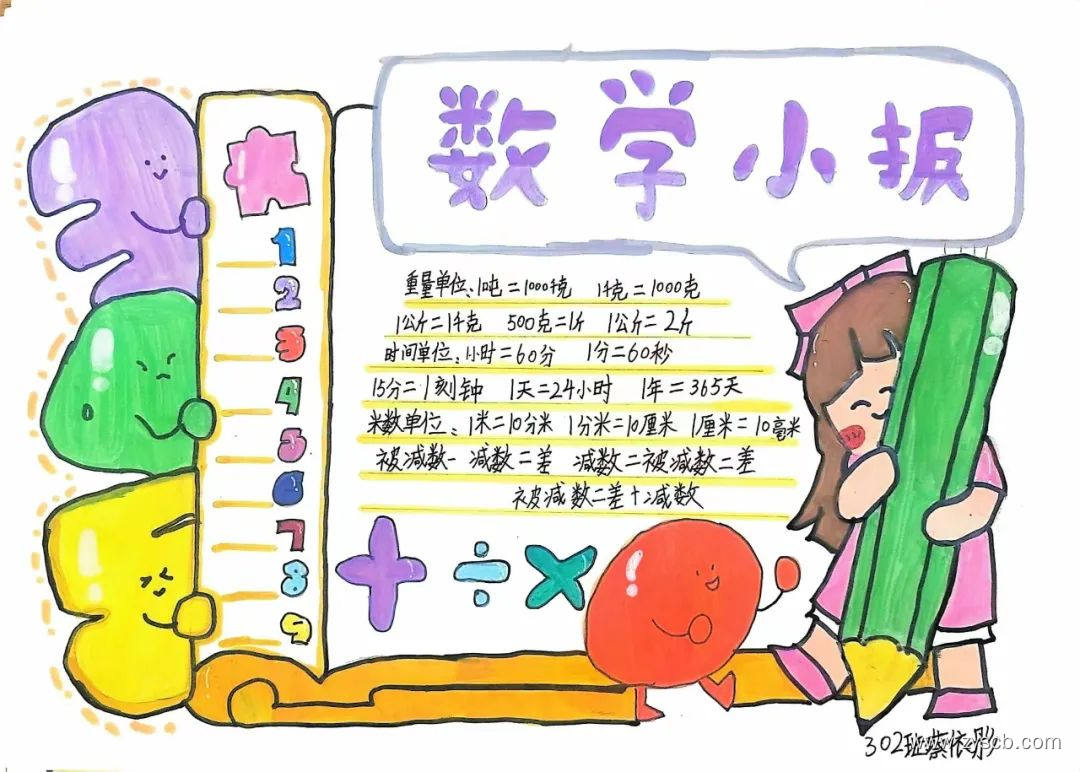 数学小报
1
2
3
4
5
6
7
8
9
重量单位:1吨=1000千克 1千克=1000克
1公斤=1千克 500克=1斤 1公斤=2斤
时间单位:小时=60分 1分=60秒
15分=1刻钟 1天=24小时 1年=365天
米数单位:1米=10分米 1分米=10厘米 1厘米=10毫米
被减数-减数=差 减数=被减数=差
被减数=差+减数
+ ÷ ×
302班蔡依彤